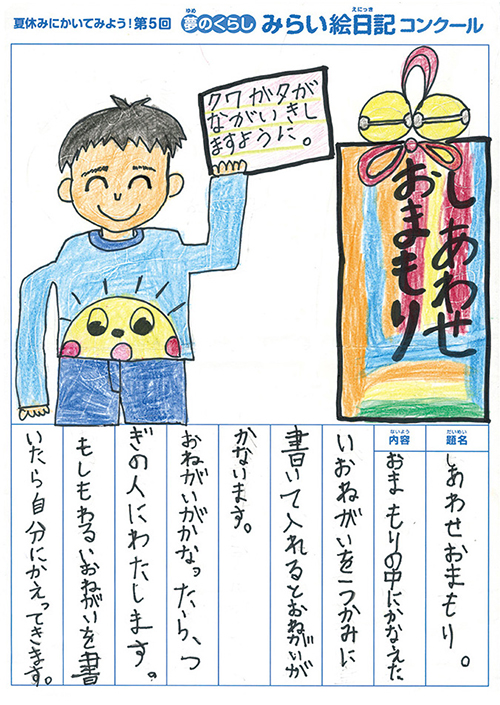 夏休みにかいてみよう！第5回 夢のくらし みらい絵日記 コンクール
ゆめ
えにっき
クワガタが
ながいきし
ますように。
しあわせ
おまもり
だいめい
題名
しあわせおまもり。
ないよう
内容
おまもりの中にかなえた
いおねがいを一つかみに
書いて入れるとおねがいが
かないます。
おねがいがかなったら、つ
ぎの人にわたします。
もしもわるいおねがいを書
いたら自分にかえってきます。